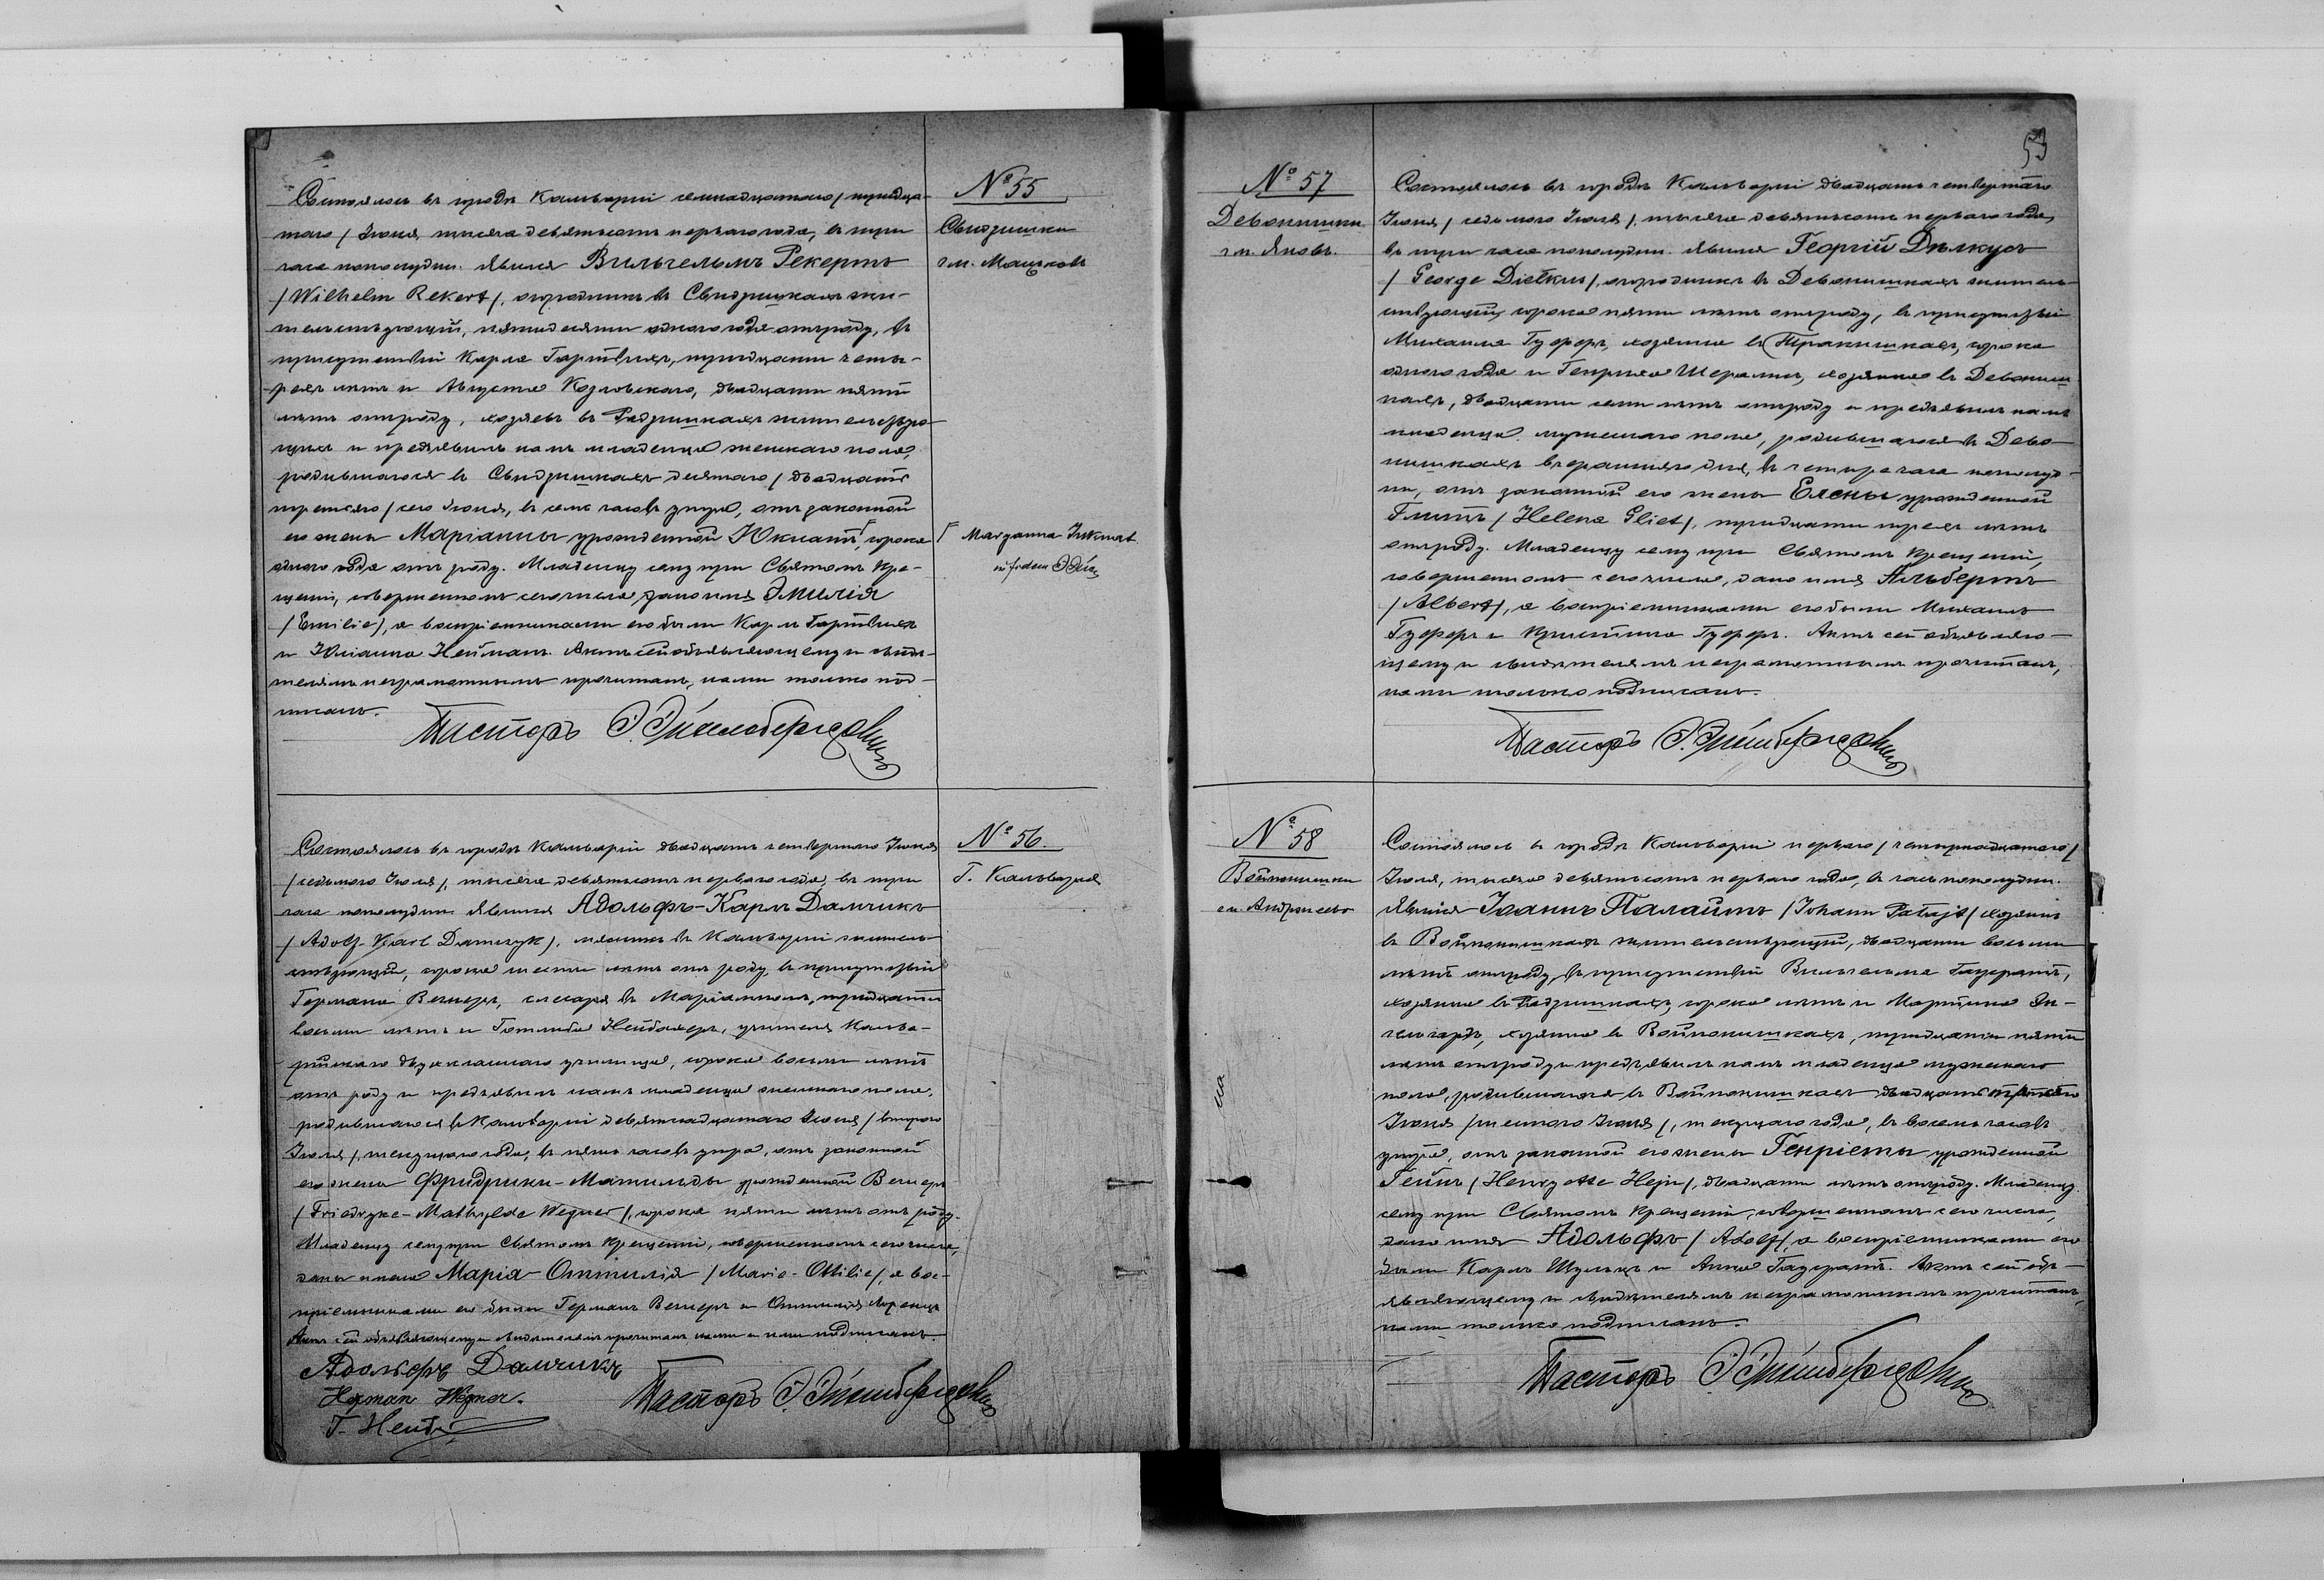 Состоялось въ городѣ Кальваріи семнадцатаго / тридца-
таго / Іюня, тысяча девятьсотъ перваго года, въ три
часа пополудни. Явился Вильгельмъ Рекертъ
/ Wilhelm Rekert /, огородникъ въ Свидзишкахъ жи-
тельствующій, пятидесяти одного года отъ роду, въ
присутствіи Карла Гартвиха, тридцати четы-
рехъ лѣтъ и Августа Козловскаго, двадцати пяти
лѣтъ отъ роду, хозяевъ въ Радзишкахъ жительствую-
щихъ и предъявилъ намъ младенца женскаго пола,
родившагося въ Свидзишкахъ десятаго / двадцать
третьяго / сего Іюня, въ семь часовъ утра, отъ законной
его жены Маріанны урожденной Юкнатъ, сорока
одного года отъ роду. Младенцу сему при Святомъ Кре-
щеніи, совершенномъ сего числа, дано имя Эмилія
/ Emilie /, а воспріемниками его были Карлъ Гартвихъ
и Юліанна Нейманъ. Актъ сей объявляющему и свидѣ-
телямъ неграмотнымъ прочитанъ, нами только под-
писанъ.
Пасторъ
№ 55
Свидзишки
гм. Мацковъ
Maryanna Juknat
in fidem
Состоялось въ городѣ Кальваріи двадцать четвертаго Іюня
/ седьмого Іюля /, тысяча девятьсотъ перваго года, въ три
часа пополудни. Явился Адольфъ-Карлъ Дамчикъ
/ Adolf-Karl Damczyk /, мясникъ въ Кальваріи житель-
ствующій, сорока шести лѣтъ отъ роду, въ присутствіи
Германа Вегнеръ, слесаря въ Маріамполѣ, тридцати
восьми лѣтъ и Готлиба Нейбахеръ, учителя Кальва-
рійскаго двухкласснаго училища, сорока восьми лѣтъ
отъ роду и предъявилъ намъ младенца женскаго пола,
родившагося въ Кальваріи девятнадцатаго Іюня / второго
Іюля /, текущаго года, въ пять часовъ утра, отъ законной
его жены Фридрики-Матильды урожденной Вегнеръ
/ Friedryke-Mathylde Wegner /, сорока пяти лѣтъ отъ роду.
Младенцу сему при Святомъ Крещеніи, совершенномъ сего числа,
даны имена Марія-Оттилія / Marie-Ottilie /, а вос-
пріемниками его были Германъ Вегнеръ и Оттилія Лоренцъ
Актъ сей объявляющему и свидѣтелямъ прочитанъ нами и ими подписанъ.
Адольфъ Дамчикъ
Herman Wegner.
Пасторъ
№ 56.
Г. Кальварія
53
№ 57
Девонишки
гм. Яновъ.
Состоялось въ городѣ Кальваріи двадцать четвертаго
Іюня / седьмого Іюля /, тысяча девятьсотъ перваго года,
въ три часа пополудни. Явился Георгій Дѣлкусъ
/ George Dietkus /, огородникъ въ Девонишкахъ житель-
ствующій, сорока пяти лѣтъ отъ роду, въ присутствіи
Михаила Гуферъ, хозяина въ Тракишкахъ, сорока
одного года и Генриха Шерамъ, хозяина въ Девониш-
кахъ, двадцати семи лѣтъ отъ роду и предъявилъ намъ
младенца мужескаго пола, родившагося въ Дево-
нишкахъ вчерашняго дня, въ четыре часа пополуд-
ни, отъ законной его жены Елены урожденной
Глитъ / Helena Gliet /, тридцати трехъ лѣтъ
отъ роду. Младенцу сему при Святомъ Крещеніи,
совершенномъ сего числа, дано имя Альбертъ
/ Albert /, а воспріемниками его были Михаилъ
Гуферъ и Кристина Гуферъ. Актъ сей объявляю-
щему и свидѣтелямъ неграмотнымъ прочитанъ,
нами только подписанъ.
Пасторъ
№ 58
Войпонишки
гм. Андржеево
Состоялось въ городѣ Кальваріи перваго / четырнадцатаго /
Іюля, тысяча девятьсотъ перваго года, въ часъ пополудни.
Явился Іоаннъ Палайтъ / Johann Patajt / хозяинъ
въ Войпонишкахъ жительствующій, двадцати восьми
лѣтъ отъ роду, въ присутствіи Вильгельма Гауератъ,
хозяина въ Радзишкахъ, сорока лѣтъ и Мартина Эн-
гельгардъ, хозяина въ Войпонишкахъ, тридцати пяти
лѣтъ отъ роду и предъявилъ намъ младенца мужескаго
пола, родившагося въ Войпонишкахъ двадцать третьяго
Іюня / шестого Іюля /, текущаго года, въ восемь часовъ
утра, отъ законной его жены Генріеты урожденной
Гейнъ / Henryette Hejn /, двадцати лѣтъ отъ роду. Младенцу
сему при Святомъ Крещеніи, совершенномъ сего числа,
дано имя Адольфъ / Adolf /, а воспріемниками его
были Карлъ Шульцъ и Анна Гауератъ. Актъ сей объ-
являющему и свидѣтелямъ неграмотнымъ прочитанъ,
нами только подписанъ.
Пасторъ